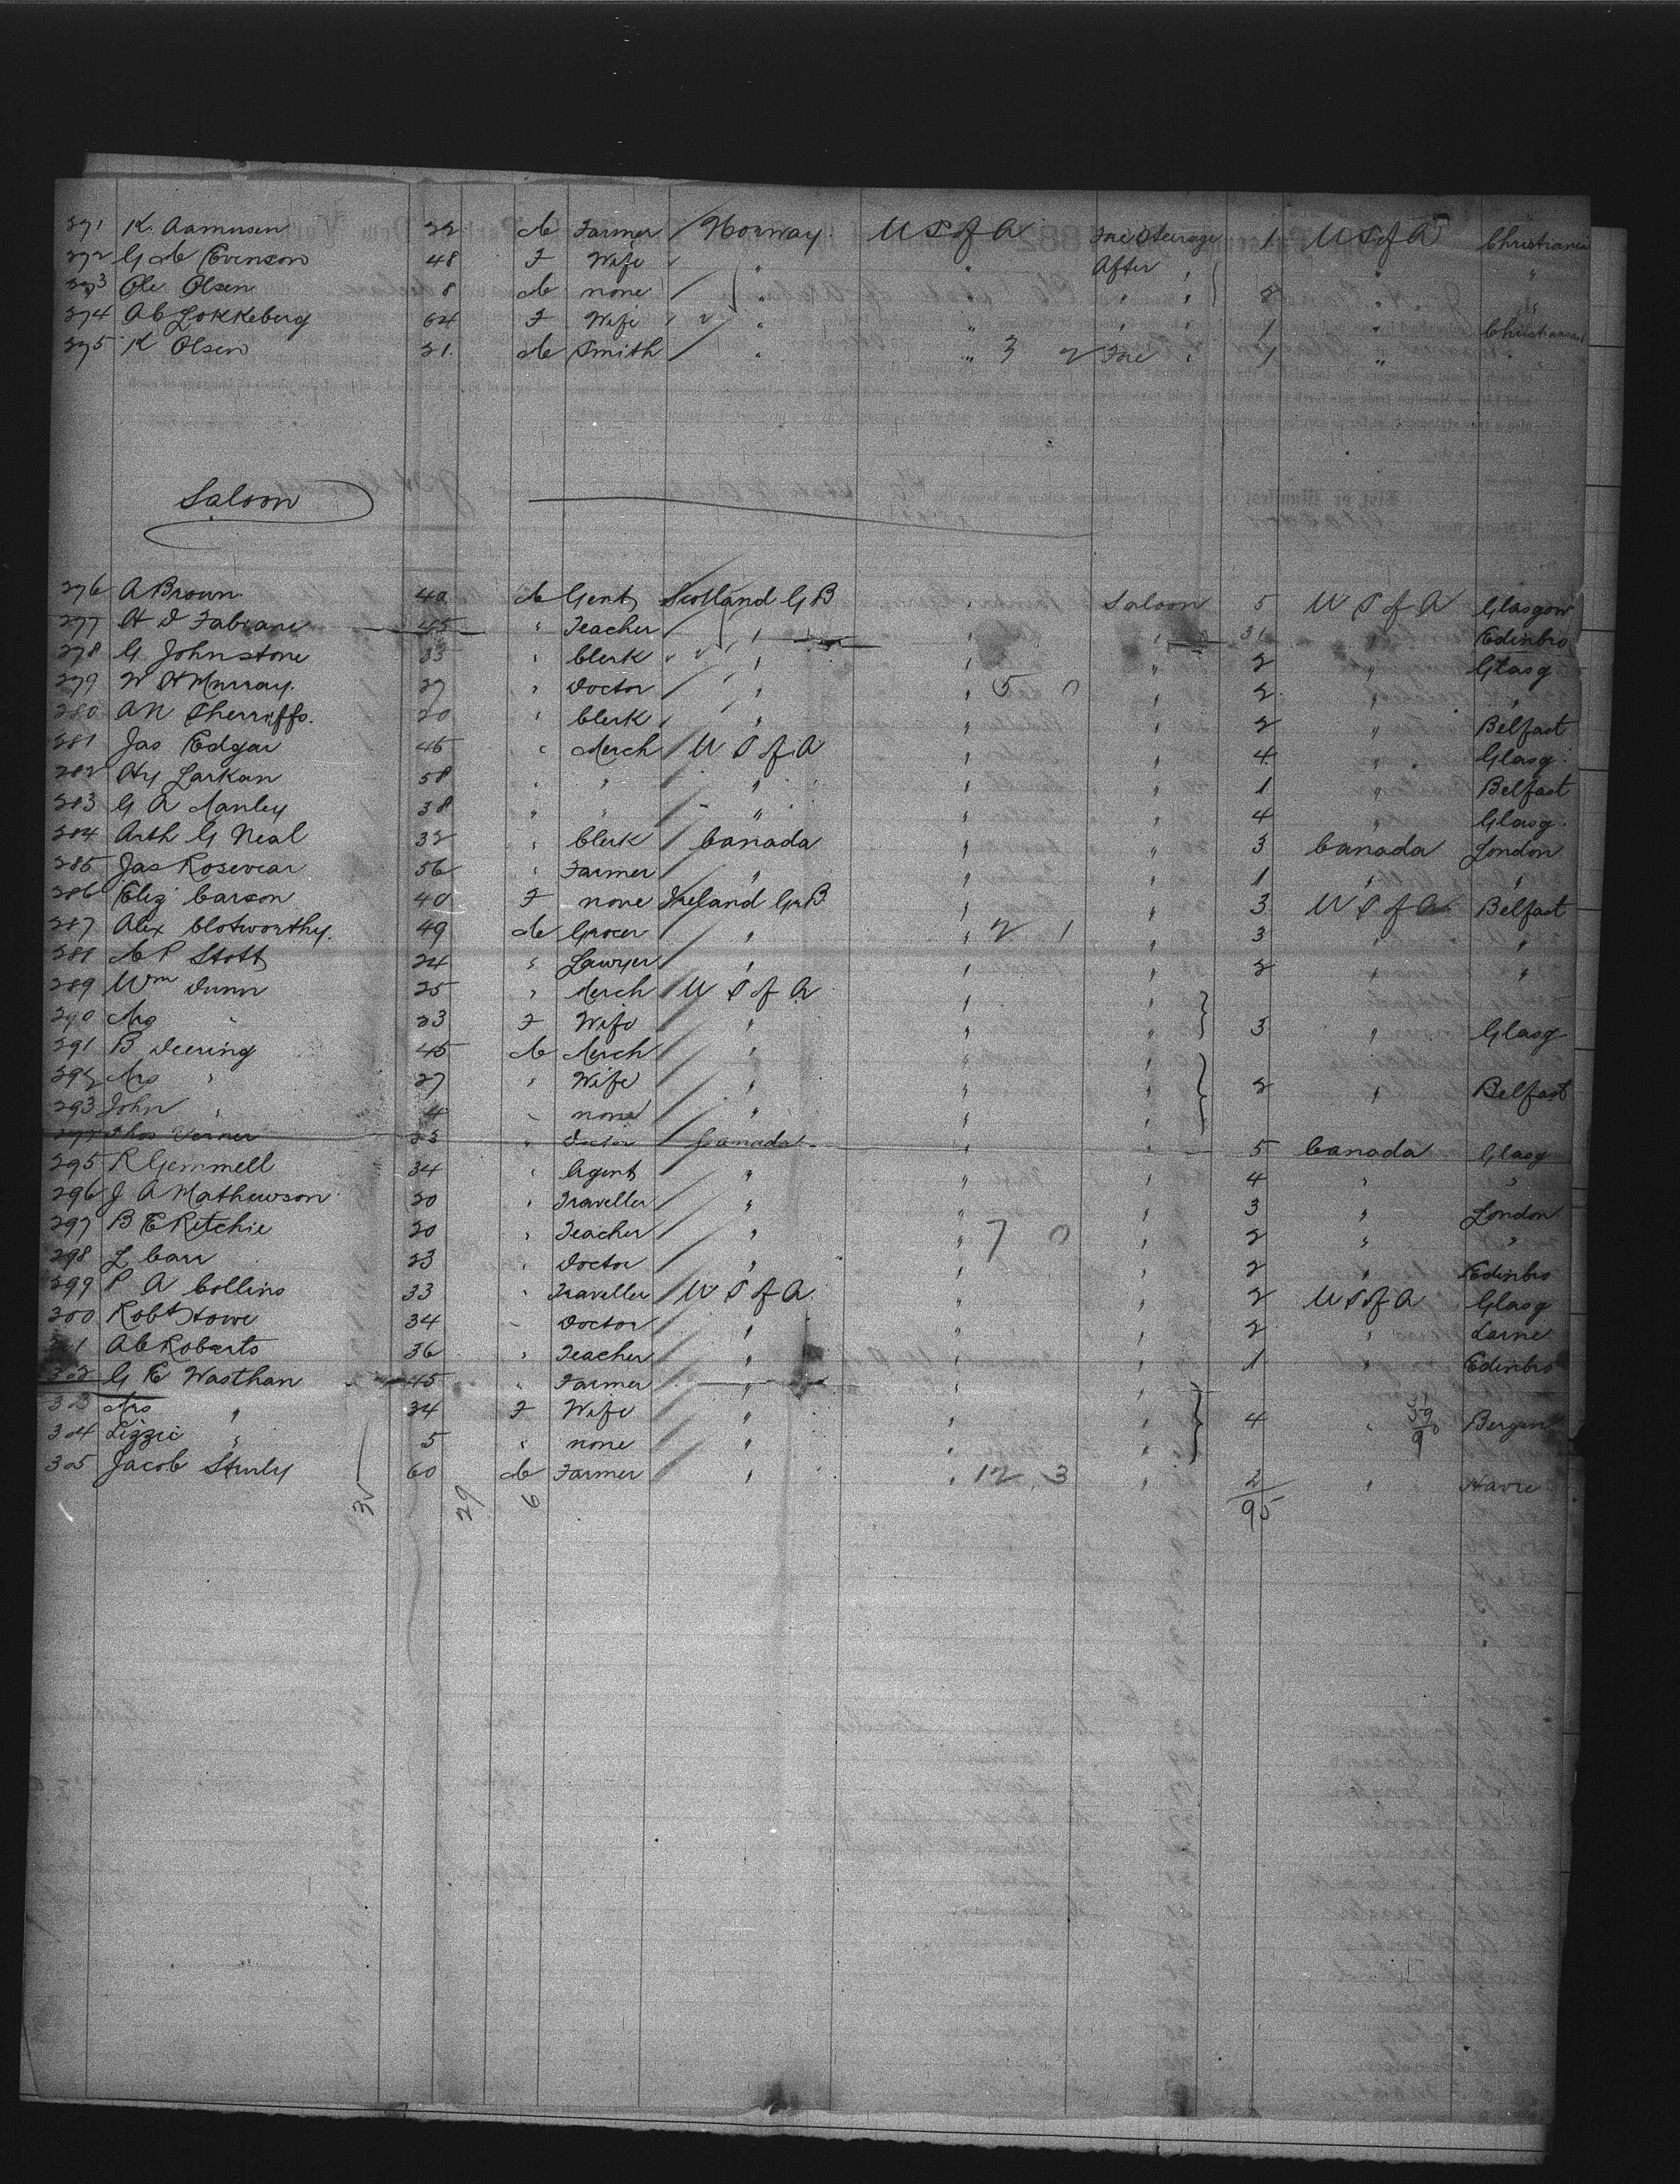 271 K. Aamusen 22 M Farmer Norway. U S of A Fore Steerage 1 U S of A Christiania
272 G M Evenson 48 F Wife " " After "
273 Ole Olsen 8 M none " " " 8 " "
274 A C Lokkeberg 64 F Wife " " " " 1 " Christiansand
275 K Olsen 21 M Smith " " 3 2 Fore " 1 " "
Saloon
276 A Brown 40 M Gent Scotland G B " Saloon 5 U S of A Glasgow
277 H D Fabiani 45 " Teacher " " " 31 " Edinbro
278 G. Johnstone 33 " Clerk " " " 2 " Glasg
279 W H Murray. 27 " Doctor " " 5 0 " 2 " "
280 A N Sherriffs. 20 " Clerk " " " 2 " Belfast
281 Jas Edgar 45 " Merch U S of A " " 4 " Glasg.
282 Hy Larkan 58 " " " " " 1 " Belfast
283 G A Manley 38 " " " " " 4 " Glasg.
284 Arth G Neal 32 " Clerk Canada " " 3 Canada London
285 Jas Rosevear 56 " Farmer " " " 1 " "
286 Eliz Carson 40 F none Ireland G B " " 3 U S of A Belfast
287 Alex Clotworthy. 49 M Grocer " " 2 1 " 3 " "
288 M P Stott 24 " Lawyer " " " 2 " "
289 Wm Dunn 25 " Merch U S of A " "
290 Mrs " 23 F Wife " " " 3 " Glasg
291 B Deering 45 M Merch " " "
292 Mrs " 27 " Wife " " " 2 " Belfast
293 John " 4 " none " " "
294 Thos Verner 23 " Doctor Canada " " 5 Canada Glasg
295 R Gemmell 34 " Agent " " " 4 " "
296 J A Mathewson 20 " Traveller " " " 3 " London
297 B E Ritchie 20 " Teacher " " 7 0 " 2 " "
298 L Carr 23 " Doctor " " " 2 " Edinbro
299 P A Collins 33 " Traveller U S of A " " 2 U S of A Glasg
300 Robt Howe 34 " Doctor " " " 2 " Larne
301 A C Roberts 36 " Teacher " " " 1 " Edinbro
302 G E Wasthan 45 " Farmer " " "
303 Mrs " 34 F Wife " " " 4 " Bergen
304 Lizzie " 5 " none " " "
305 Jacob Sturly 60 M Farmer " " 12 3 " 2 " Havre
29 6 95